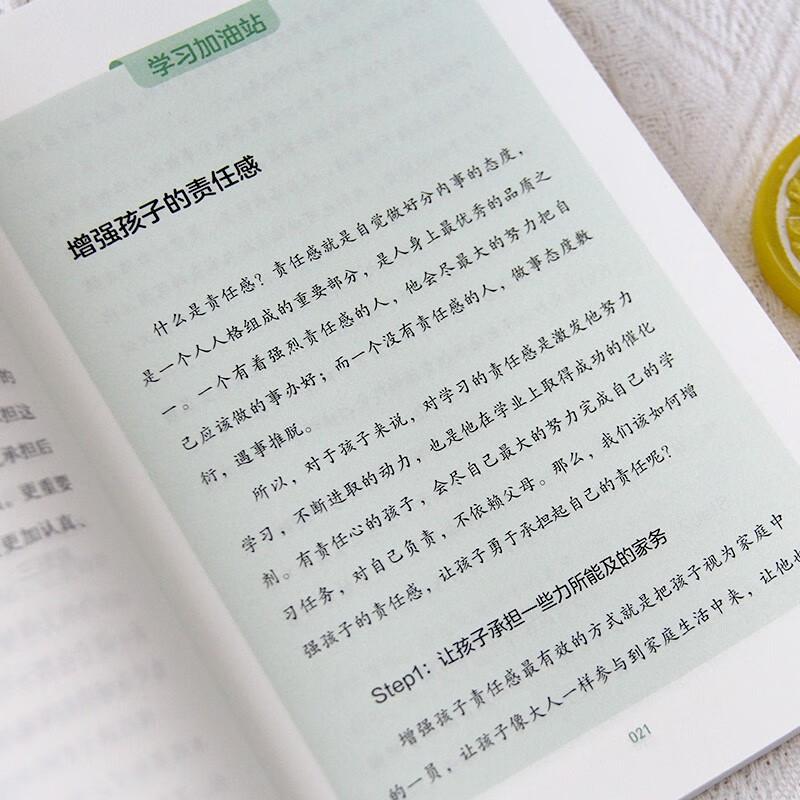 的
担这
承担后
。更重要
更加认真、
学习加油站
增强孩子的责任感
什么是责任感？责任感就是自觉做好分内事的态度，
是一个人人格组成的重要部分，是人身上最优秀的品质之
一。一个有着强烈责任感的人，他会尽最大的努力把自
己应该做的事办好；而一个没有责任感的人，做事态度敷
衍，遇事推脱。
所以，对于孩子来说，对学习的责任感是激发他努力
学习，不断进取的动力，也是他在学业上取得成功的催化
剂。有责任心的孩子，会尽自己最大的努力完成自己的学
习任务，对自己负责，不依赖父母。那么，我们该如何增
强孩子的责任感，让孩子勇于承担起自己的责任呢？
Step1：让孩子承担一些力所能及的家务
增强孩子责任感最有效的方式就是把孩子视为家庭中
的一员，让孩子像大人一样参与到家庭生活中来，让他
021